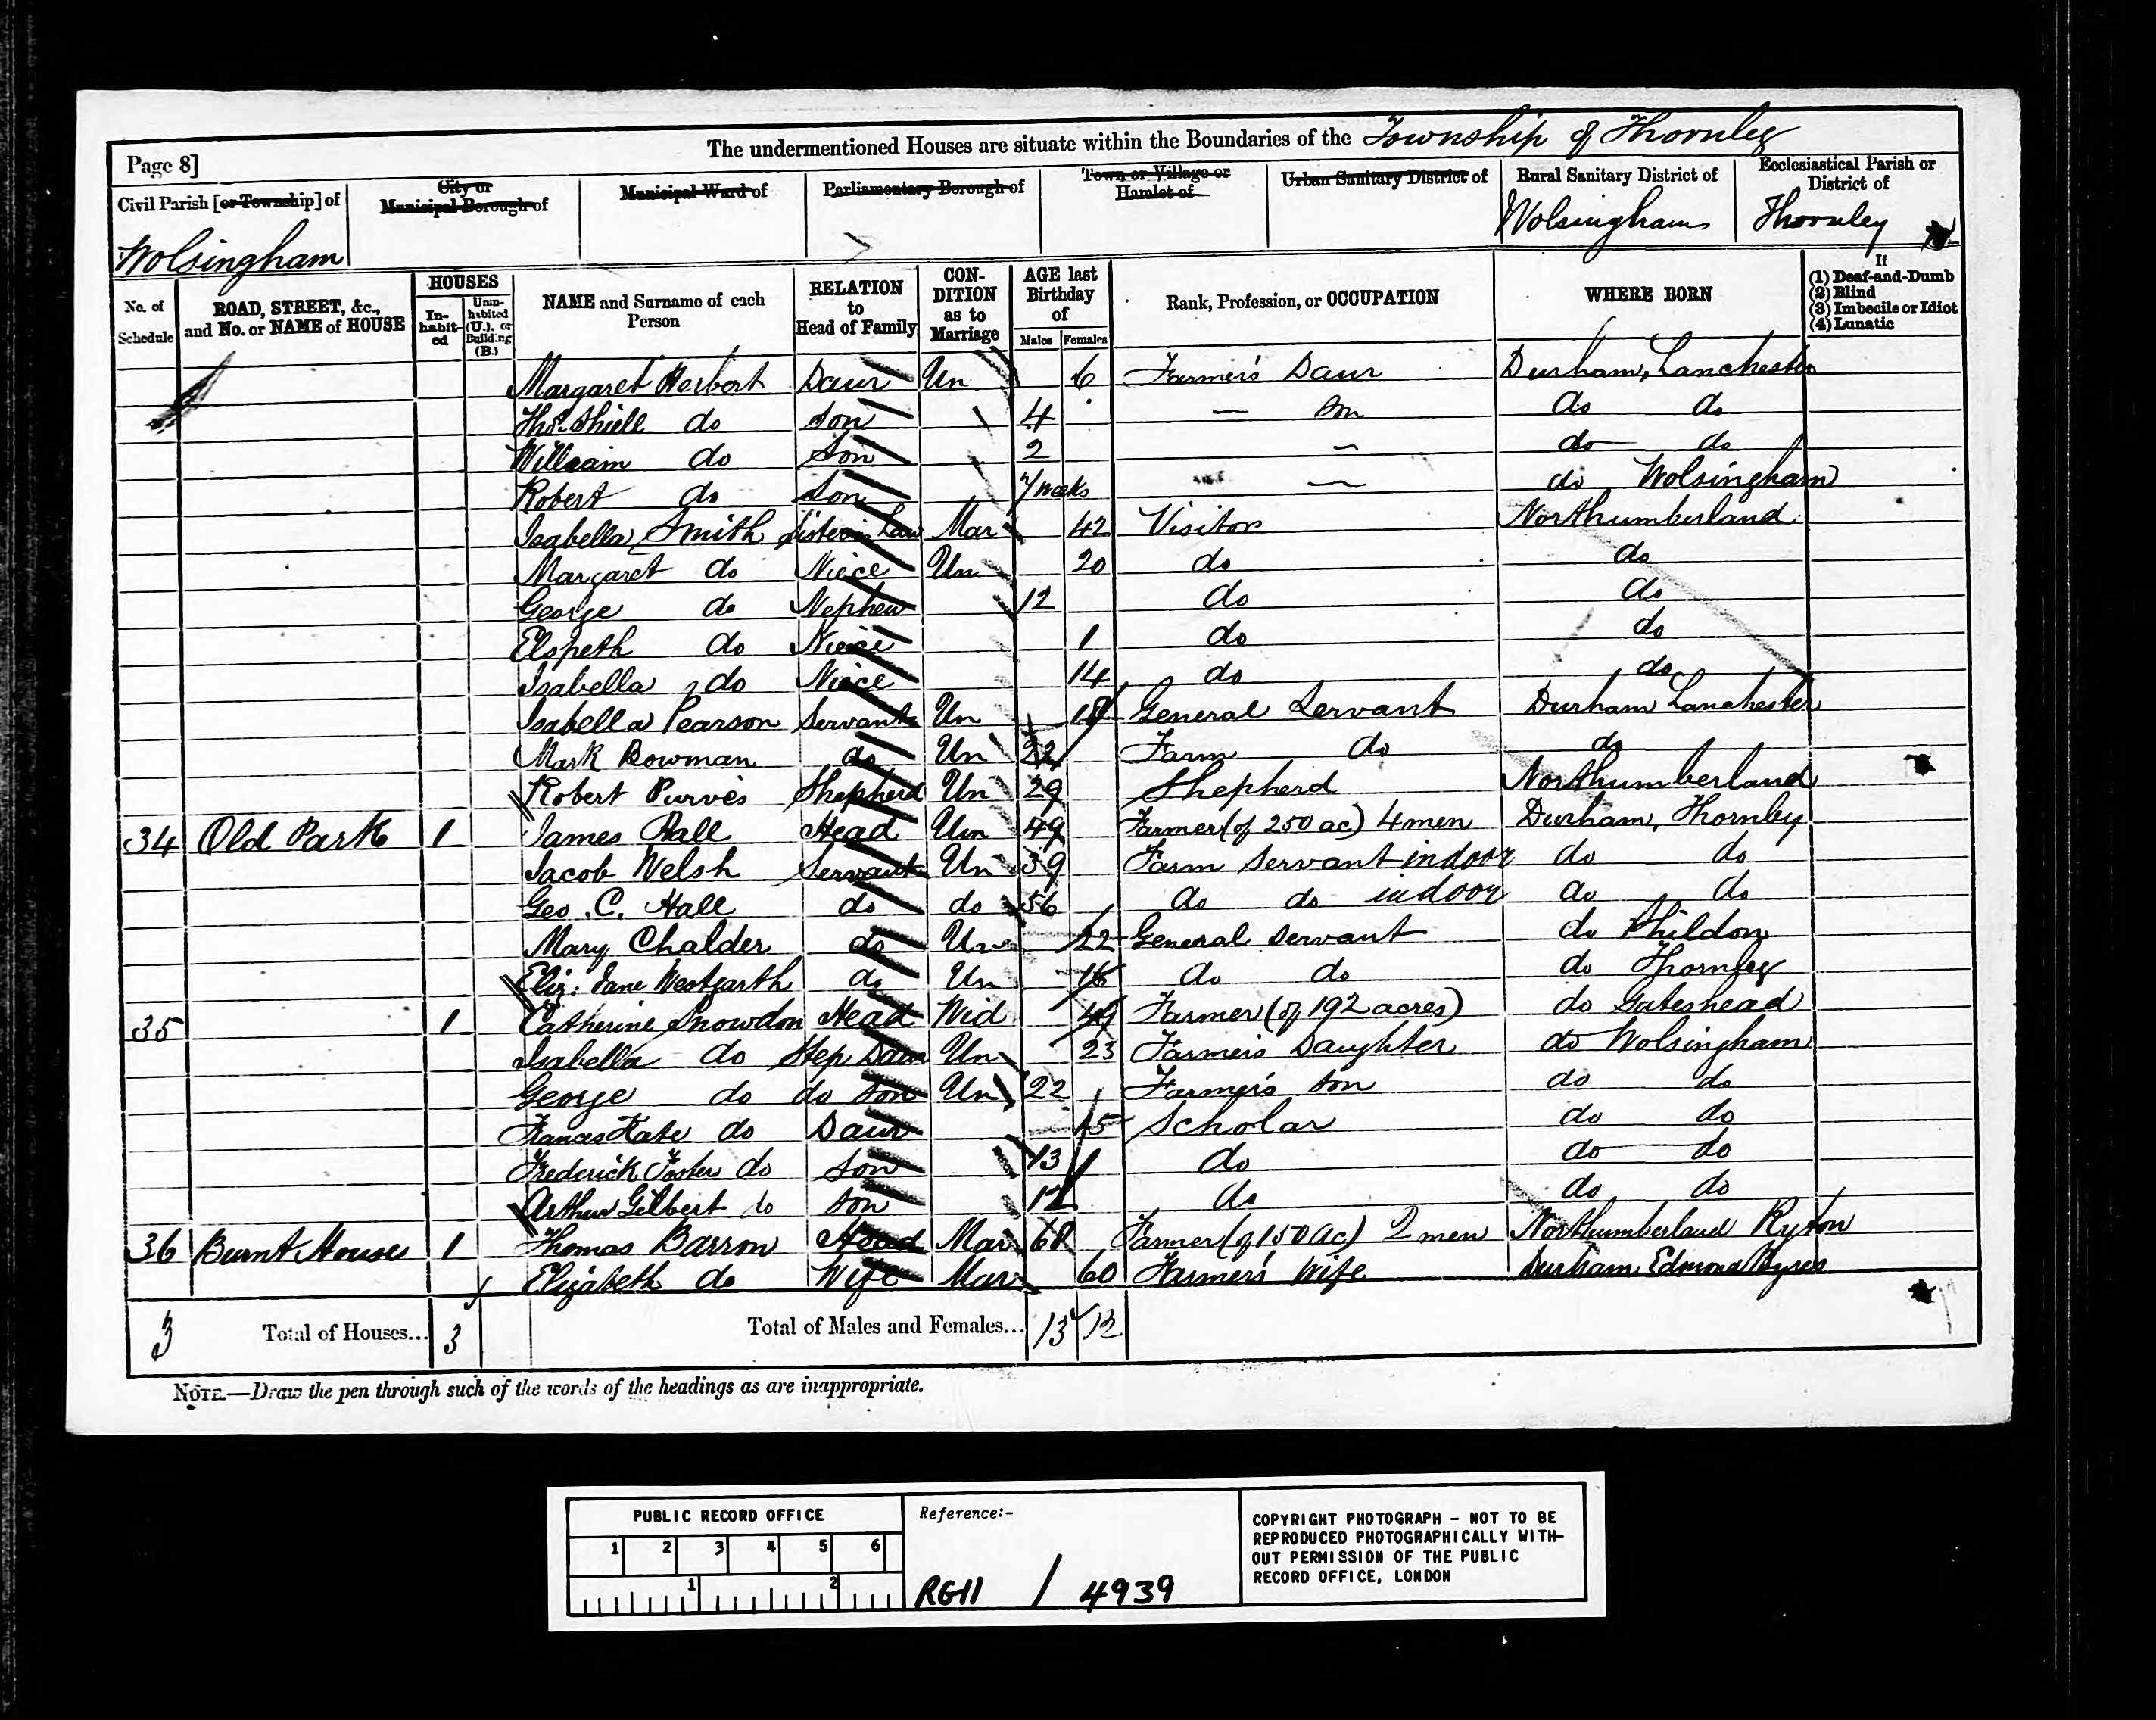 The undermentioned Houses are situate within the Boundaries of the Township of Thornley
Page 8]
Civil Parish [or Township] of
City or Municipal Borough of
Municipal Ward of
Parliamentary Borough of
Town or Village or Hamlet of
Urban Sanitary District of
Rural Sanitary District of
Ecclesiastical Parish or District of
Wolsingham
Wolsingham
Thornley
No. of Schedule
ROAD, STREET, &c., and No. or NAME of HOUSE
HOUSES
In-habit-ed
Unin-habited (U.), or Building (B.)
NAME and Surname of each Person
RELATION to Head of Family
CON-DITION as to Marriage
AGE last Birthday of
Males Females
Rank, Profession, or OCCUPATION
WHERE BORN
If (1) Deaf-and-Dumb (2) Blind (3) Imbecile or Idiot (4) Lunatic
Margaret Herbert Daur Un 6 Farmer's Daur Durham, Lanchester
Thos. Shiell do Son 4 — Son do do
William do Son 2 — do do
Robert do Son 7 weeks — do Wolsingham
Isabella Smith Sister in Law Mar 42 Visitor Northumberland
Margaret do Niece Un 20 do do
George do Nephew 12 do do
Elspeth do Niece 1 do do
Isabella do Niece 14 do do
Isabella Pearson Servant Un General Servant Durham Lanchester
Mark Bowman do Un 22 Farm do do
Robert Purves Shepherd Un 29 Shepherd Northumberland
34 Old Park 1 James Hall Head Un 49 Farmer (of 250 ac) 4 men Durham, Thornley
Jacob Welsh Servant Un 39 Farm Servant indoor do do
Geo. C. Hall do do 56 do do indoor do do
Mary Chalder do Un 22 General Servant do Shildon
Eliz: Jane Westgarth do Un 16 do do do Thornley
35 1 Catherine Snowdon Head Wid 49 Farmer (of 192 acres) do Gateshead
Isabella do Step Daur Un 23 Farmer's Daughter do Wolsingham
George do do Son Un 22 Farmer's Son do do
Frances Kate do Daur 15 Scholar do do
Frederick Foster do Son 13 do do do
Arthur Gilbert do Son 12 do do do
36 Burnt House 1 Thomas Barron Head Mar 68 Farmer (of 150 Ac) 2 men Northumberland Ryton
Elizabeth do Wife Mar 60 Farmer's Wife Durham Edmond Byers
3 Total of Houses... 3 Total of Males and Females... 13 12
NOTE.—Draw the pen through such of the words of the headings as are inappropriate.
PUBLIC RECORD OFFICE
1 2 3 4 5 6
1 2
Reference:-
RG11 / 4939
COPYRIGHT PHOTOGRAPH – NOT TO BE
REPRODUCED PHOTOGRAPHICALLY WITH-
OUT PERMISSION OF THE PUBLIC
RECORD OFFICE, LONDON